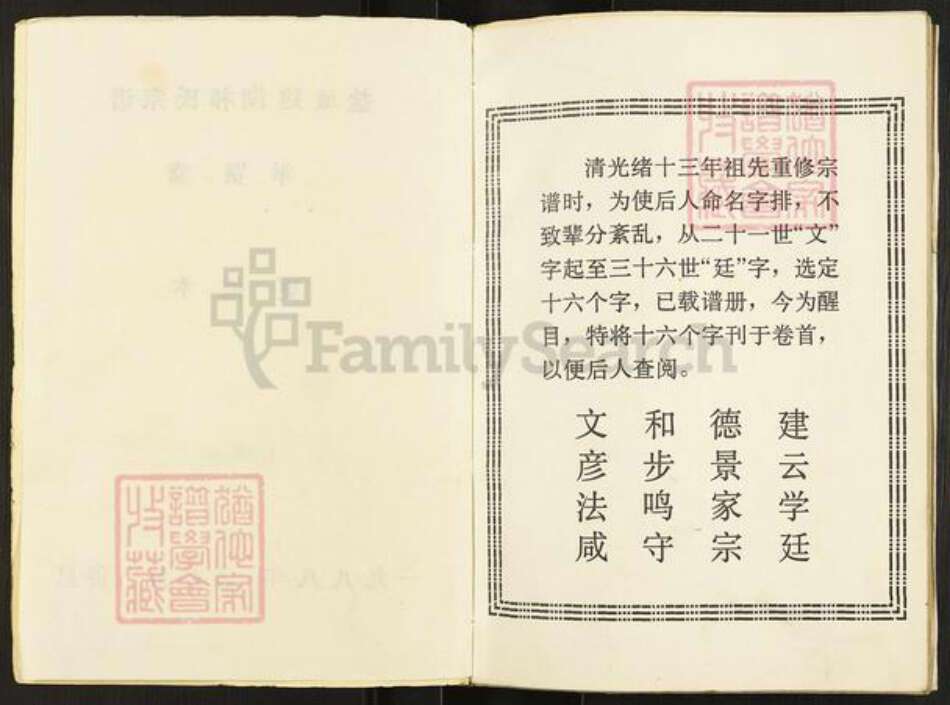 清光绪十三年祖先重修宗
谱时，为使后人命名字排，不
致辈分紊乱，从二十一世“文”
字起至三十六世“廷”字，选定
十六个字，已载谱册，今为醒
目，特将十六个字刊于卷首，
以便后人查阅。
文 和 德 建
彦 步 景 云
法 鸣 家 学
咸 守 宗 廷
FamilySearch